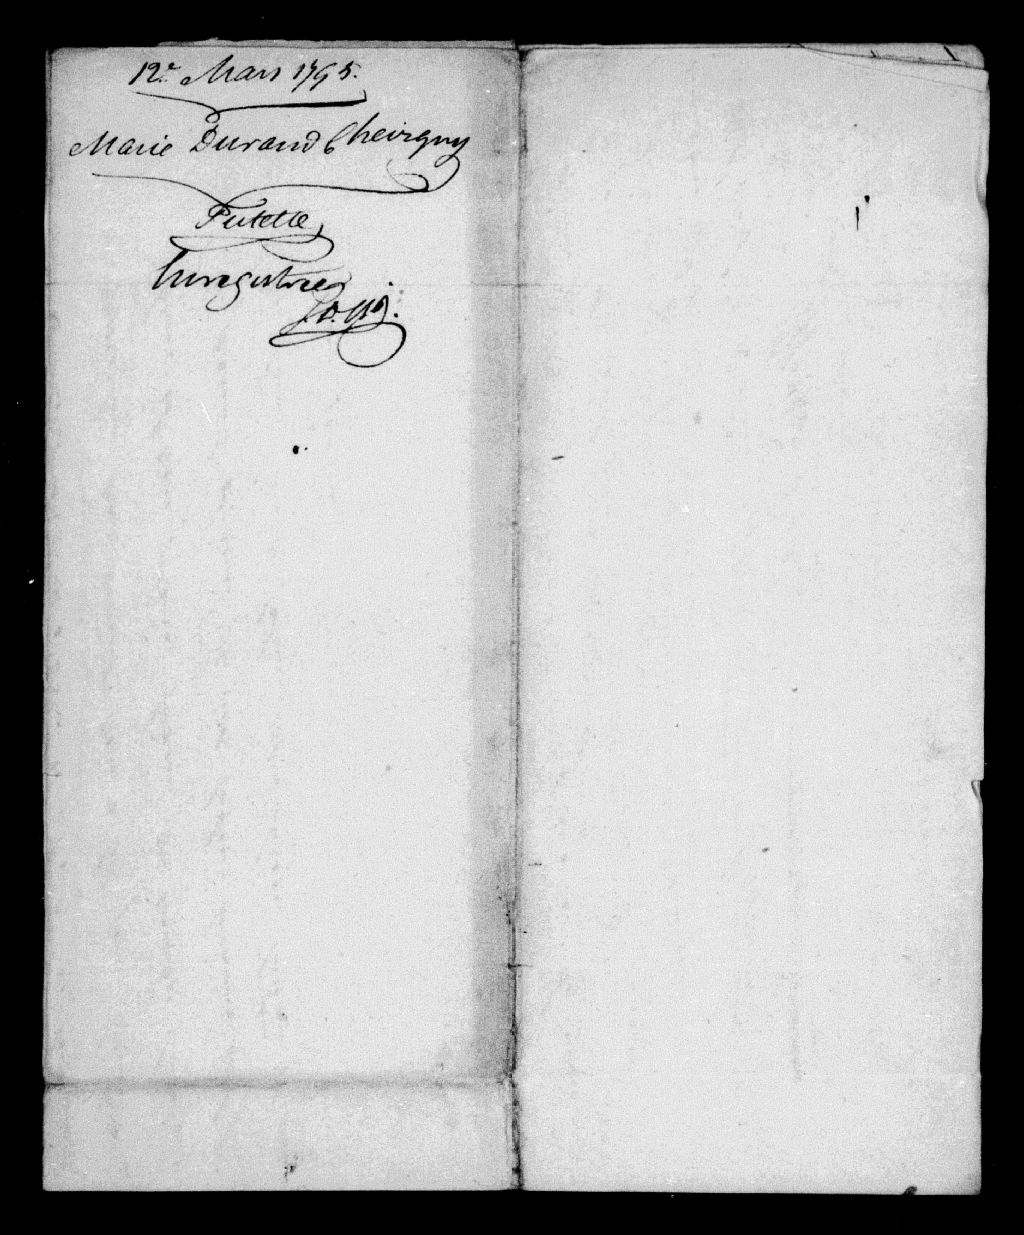 12e Mars 1795.
Marie Durand Cheirgny
Tutelle
Enregistrée